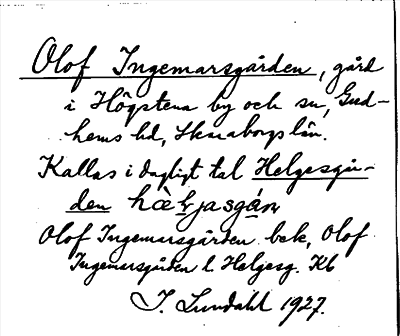 Olof Ingemarsgården, gård
i Högstena by och sn, Gud-
hems hd, Skaraborgs län.
Kallas i dagligt tal Helgesgår-
den hàljasgán
Olof Ingemarsgården bek, Olof
Ingemarsgården l Helgesg. Kb
I. Lundahl 1927.